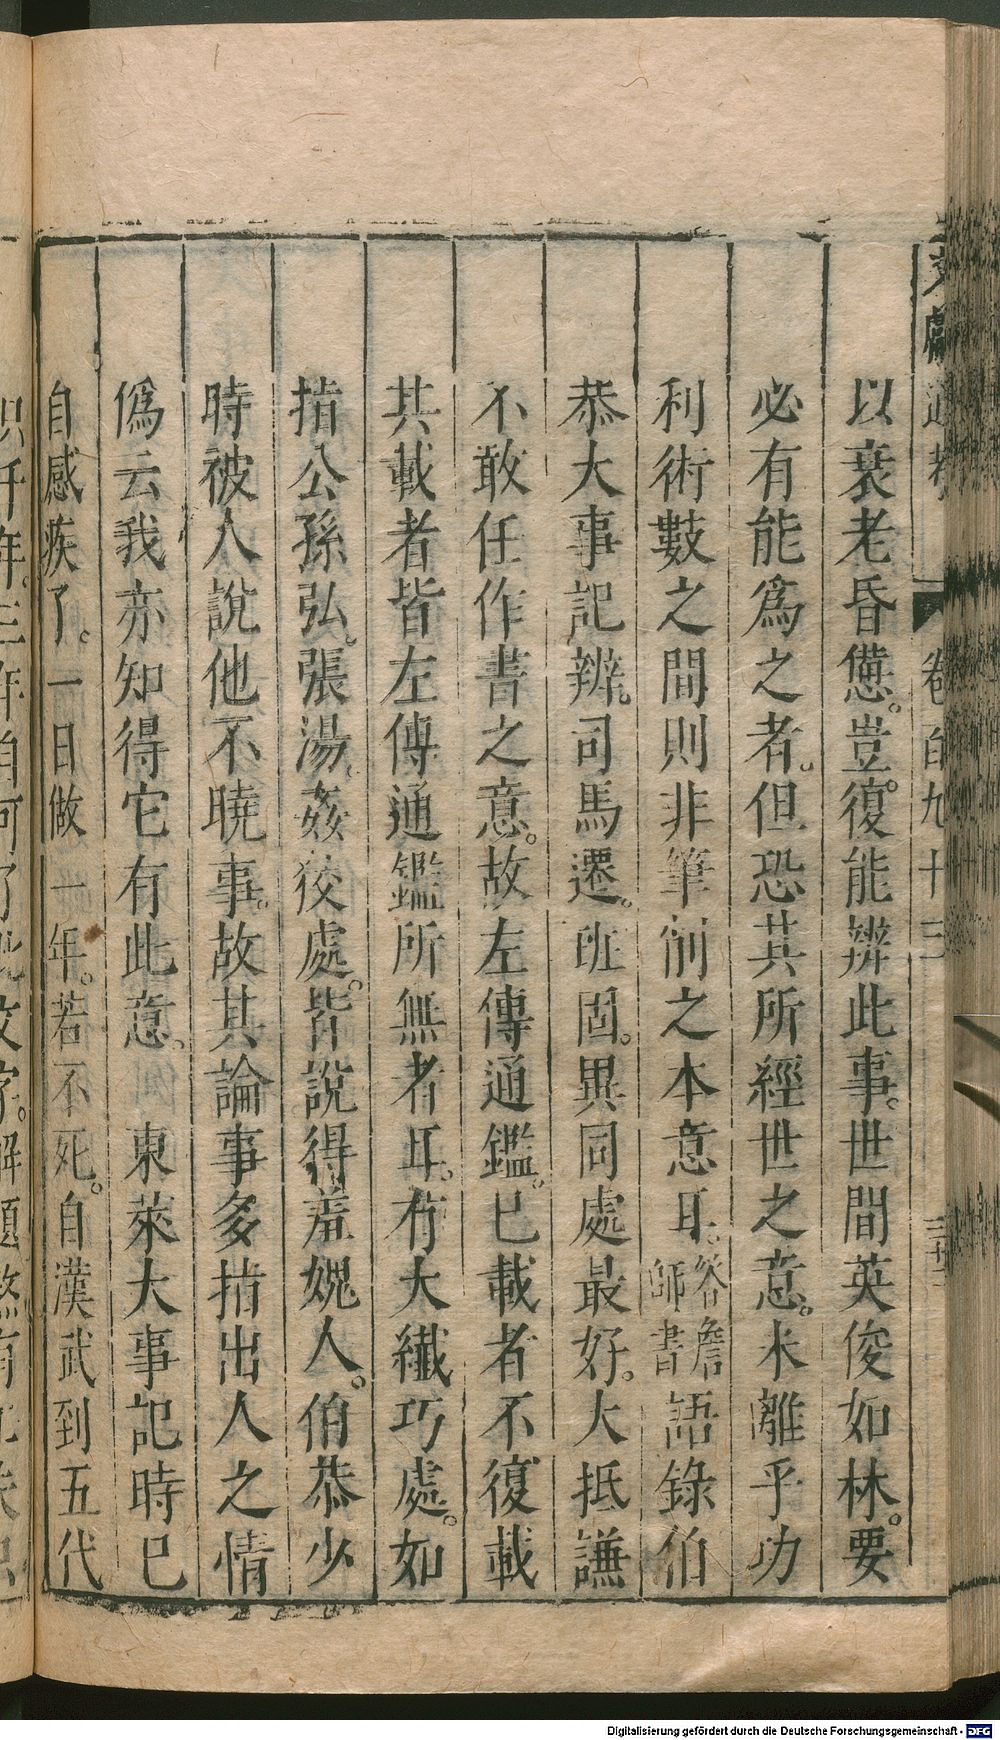 文獻通考 卷百九十三
以衰老昏憊。豈復能辨此事。世間英俊如林。要
必有能爲之者。但恐其所經世之意。未離乎功
利術數之間則非筆削之本意耳。答詹師書 語錄伯
恭大事記辨。司馬遷。班固。異同處最好。大抵謙
不敢任作書之意。故左傳通鑑。已載者不復載
其載者皆左傳通鑑所無者耳。有大纖巧處。如
指公孫弘。張湯。姦狡處。皆說得羞媿人。伯恭少
時被人說他不曉事。故其論事多指出人之情
僞云我亦知得它有此意。東萊大事記時已
自感疾了。一日做一年。若不死。自漢武到五代
Digitalisierung gefördert durch die Deutsche Forschungsgemeinschaft - DFG